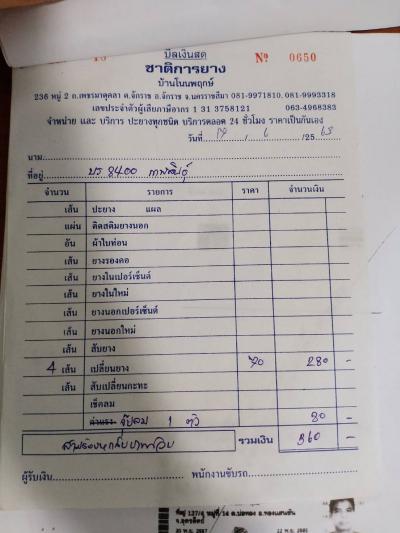 บิลเงินสด
№ 0650
ชาติการยาง
บ้านโนนพฤกษ์
236 หมู่ 2 ถ.เพชรมาตุคลา ต.จักราช อ.จักราช จ.นครราชสีมา 081-9971810, 081-9993318
เลขประจำตัวผู้เสียภาษีอากร 1 31 3758121 063-4968383
จำหน่าย และ บริการ ปะยางทุกชนิด บริการตลอด 24 ชั่วโมง ราคาเป็นกันเอง
วันที่ 17 / 6 / 25 63
นาม
ที่อยู่ บร 8400 กาฬสินธุ์
จำนวน รายการ ราคา จำนวนเงิน
เส้น ปะยาง แผล
แผ่น ติดสติมยางนอก
อัน ผ้าใบท่อน
เส้น ยางรองคอ
เส้น ยางในเปอร์เซ็นต์
เส้น ยางในใหม่
เส้น ยางนอกเปอร์เซ็นต์
เส้น ยางนอกใหม่
เส้น สับยาง
4 เส้น เปลี่ยนยาง 70 280 -
เส้น สับเปลี่ยนกะทะ
เช็คลม
ค่าแรง จุ๊บลม 1 ตัว 80 -
สามร้อยหกสิบบาทถ้วน รวมเงิน 360 -
ผู้รับเงิน พนักงานขับรถ
ที่อยู่ 127/4 หมู่ที่ 14 ต.บ่อทอง อ.ทองแสนขัน
จ.อุตรดิตถ์